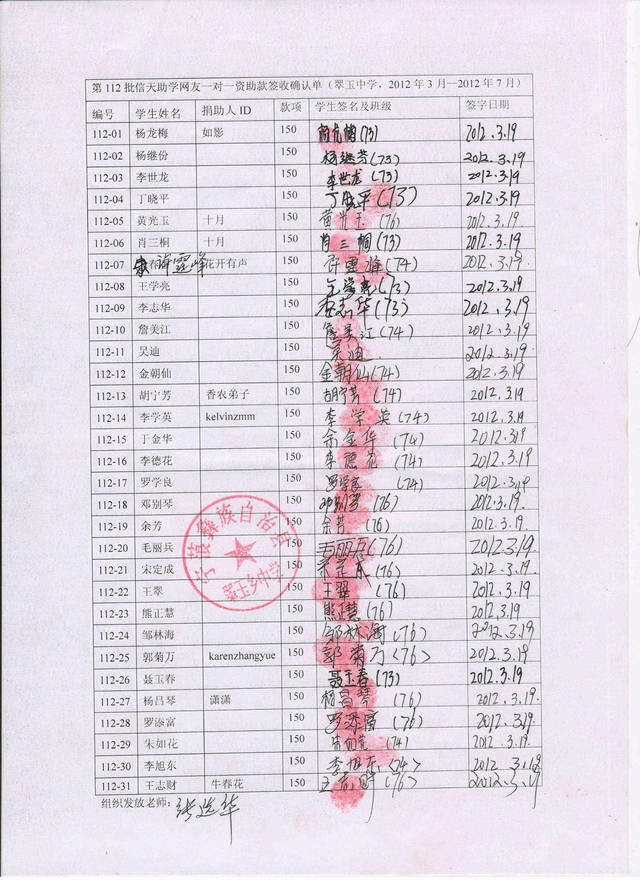 第 112 批信天助学网友一对一资助款签收确认单（翠玉中学，2012 年 3 月—2012 年 7 月）
编号 学生姓名 捐助人 ID 款项 学生签名及班级 签字日期
112-01 杨龙梅 如影 150 (73) 2012.3.19
112-02 杨继份 150 杨继芬(73) 2012.3.19
112-03 李世龙 150 李世龙(73) 2012.3.19
112-04 丁晓平 150 丁晓平(73) 2012.3.19
112-05 黄光玉 十月 150 黄光玉(76) 2012.3.19
112-06 肖三桐 十月 150 肖三桐(73) 2012.3.19
112-07 花开有声 150 (74) 2012.3.19
112-08 王学亮 150 王学亮(73) 2012.3.19
112-09 李志华 150 李志华(73) 2012.3.19
112-10 詹美江 150 詹美江(74) 2012.3.19
112-11 吴迪 150 吴迪. 2012.3.19
112-12 金朝仙 150 金朝仙(74) 2012.3.19
112-13 胡宁芳 香农弟子 150 胡宁芳(74) 2012.3.19
112-14 李学英 kelvinzmm 150 李学英(74) 2012.3.19
112-15 于金华 150 余金华(74) 2012.3.19
112-16 李德花 150 李德花(74) 2012.3.19
112-17 罗学良 150 罗学良(74) 2012.3.19
112-18 邓别琴 150 邓别琴(76) 2012.3.19
112-19 余芳 150 余芳(76) 2012.3.19
112-20 毛丽兵 150 毛丽兵(76) 2012.3.19.
112-21 宋定成 150 (76) 2012.3.19
112-22 王翠 150 王翠(76) 2012.3.19
112-23 熊正慧 150 熊正慧(76) 2012.3.19
112-24 邹林海 150 邹林海(76) 2012.3.19
112-25 郭菊万 karenzhangyue 150 郭菊万(76) 2012.3.19
112-26 聂玉春 150 聂玉春(73) 2012.3.19
112-27 杨昌琴 潇潇 150 杨昌琴(76) 2012.3.19
112-28 罗添富 150 罗添富(76) 2012.3.19
112-29 朱如花 150 朱如花(74) 2012.3.19
112-30 李旭东 150 李旭东(74) 2012.3.19
112-31 王志财 牛春花 150 (76) 2012.3.19
组织发放老师： 张选华
宁蒗彝族自治县
翠玉乡中学